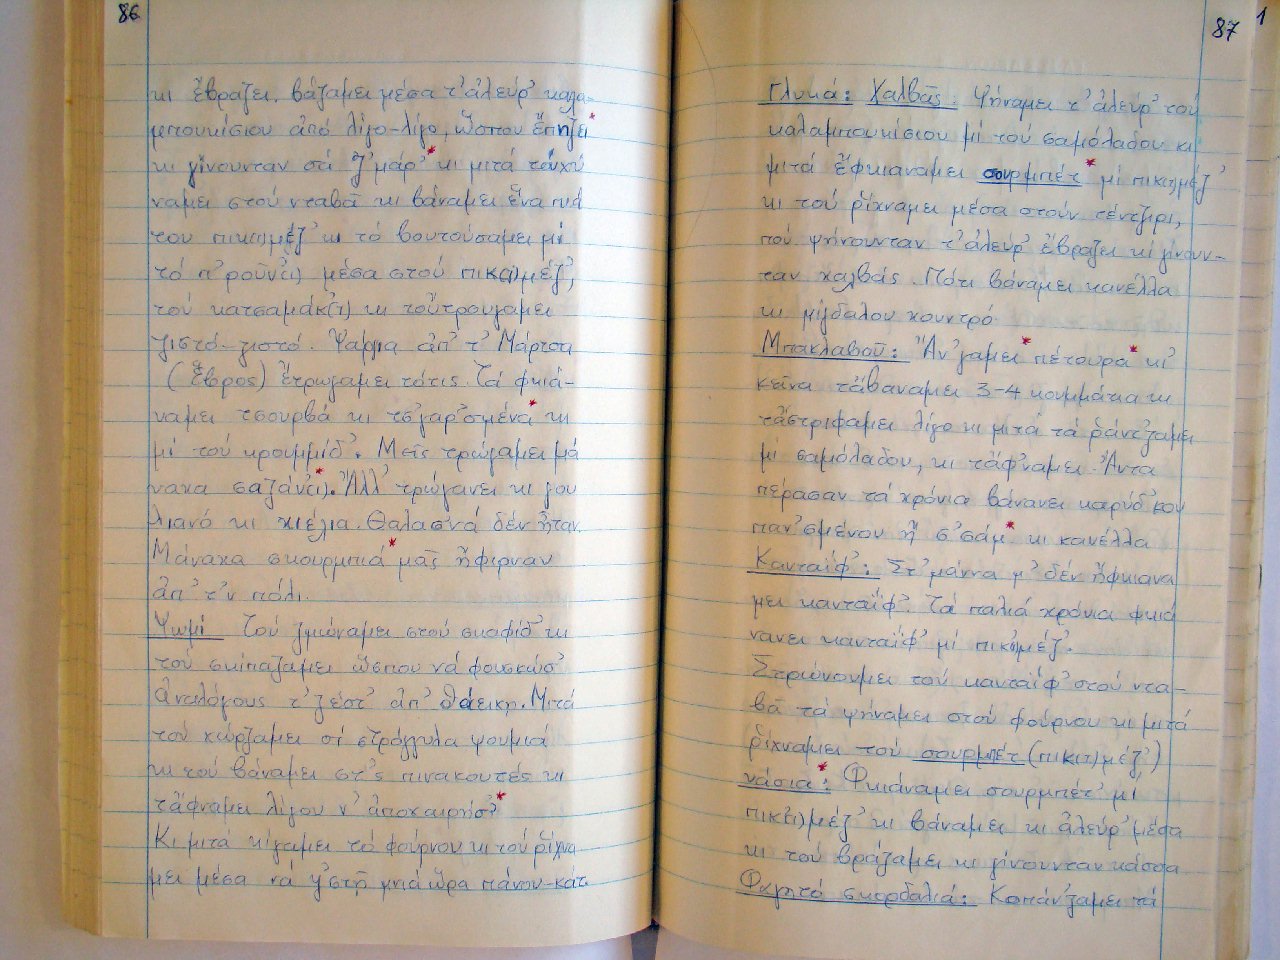 86
κι ἔβραζει. βάζαμει μέσα τ' ἀλεύρ' καλα-
μπουκίσιου ἀπό λίγο-λίγο, ὥσπου ἔπηζει*
κι γίνουνταν σά ζ'μάρ'* κι μιτά
ναμει στού νταβᾶ κι βάναμει ἕνα
του πικ(ι)μέζ' κι τό βουτούσαμει μί
τό π'ροῦν(ι) μέσα στού πικ(ι)μέζ',
τού κατσαμάκ(ι) κι τοὔτρουγαμει
ζιστό-ζιστό. Ψάρια ἀπ' τ' Μάρτσα
(Ἕβρος) ἔτρωγαμει τότις. Τά φκιά-
ναμει τσουρβά κι τσ'γαρ'σμένα* κι
μί τού κρουμμίδ'. Μεῖς τρώγαμει μά
ναχα σαζάν(ι)*. Ἄλλ' τρώγανει κι γου
λιανό κι χιέλια. Θαλασ'νά δέν ἦταν.
Μάναχα σκουρμπιά* μᾶς ἤφιρναν
ἀπ' τ'ν πόλι.
Ψωμί Τού ζμώναμει στού σκαφίδ' κι
τού σκίπαζαμει ὥσπου νά φουσκώσ'
Ἀναλόγους τ' ζέστ' ἀπ' θάεικη. Μιτά
τού χώρζαμει σί στρόγγυλα ψουμιά
κι τού βάναμει στ'ς πινακουτές κι
τἄφναμει λίγου ν' ἀποκαιρήσ'*
Κι μιτά κίγαμει τό φούρνου κι τού ρίχνα
μει μέσα νά ψ'στῆ μιά ὥρα πάνου-κάτ.
87 1
Γλυκά: Χαλβᾶς: Ψήναμει τ' ἀλεύρ' τού
καλαμπουκίσιου μί τού σαμόλαδου κι
μιτά ἔφκιαναμει σουρμπέτ* μί πικ(ι)μέζ'
κι τού ρίχναμει μέσα στούν τέντζιρι,
πού ψήνουνταν τ' ἀλεύρ' ἔβραζει κι γίνουν-
ταν χαλβάς. Πότι βάναμει κανέλλα
κι μύγδαλου χουντρό
Μπακλαβοῦ: Ἄν'γαμει* πέτουρα* κι
κεῖνα τἄβαναμει 3-4 κουμμάτια κι
τἄστριφαμει λίγο κι μιτά τά ράντ'ζαμει
μί σαμόλαδου, κι τἄφ'ναμει. Ἄντα
πέρασαν τά χρόνια βάνανει καρύδ' κου
παν'σμένου ἤ σ'σάμ* κι κανέλλα
Κανταΐφ': Στ' μάννα μ' δέν ἤφκιανα
μει κανταΐφ'. Τά παλιά χρόνια φκιά
νανει κανταΐφ' μί πικ'μέζ'.
Στρώνουμει τού κανταΐφ' στού ντα-
βᾶ τά ψήναμει στού φούρνου κι μιτά
ρίχναμει τού σουρμπέτ (πικ(ι)μέζ')
κάσια*: Φκιάναμει σουρμπέτ' μί
πικ(ι)μέζ' κι βάναμει κι ἀλεύρ' μέσα
κι τού βράζαμει κι γίνουνταν κάσσα
Φαγητό σκορδαλιά: Κοπάν'ζαμει τά